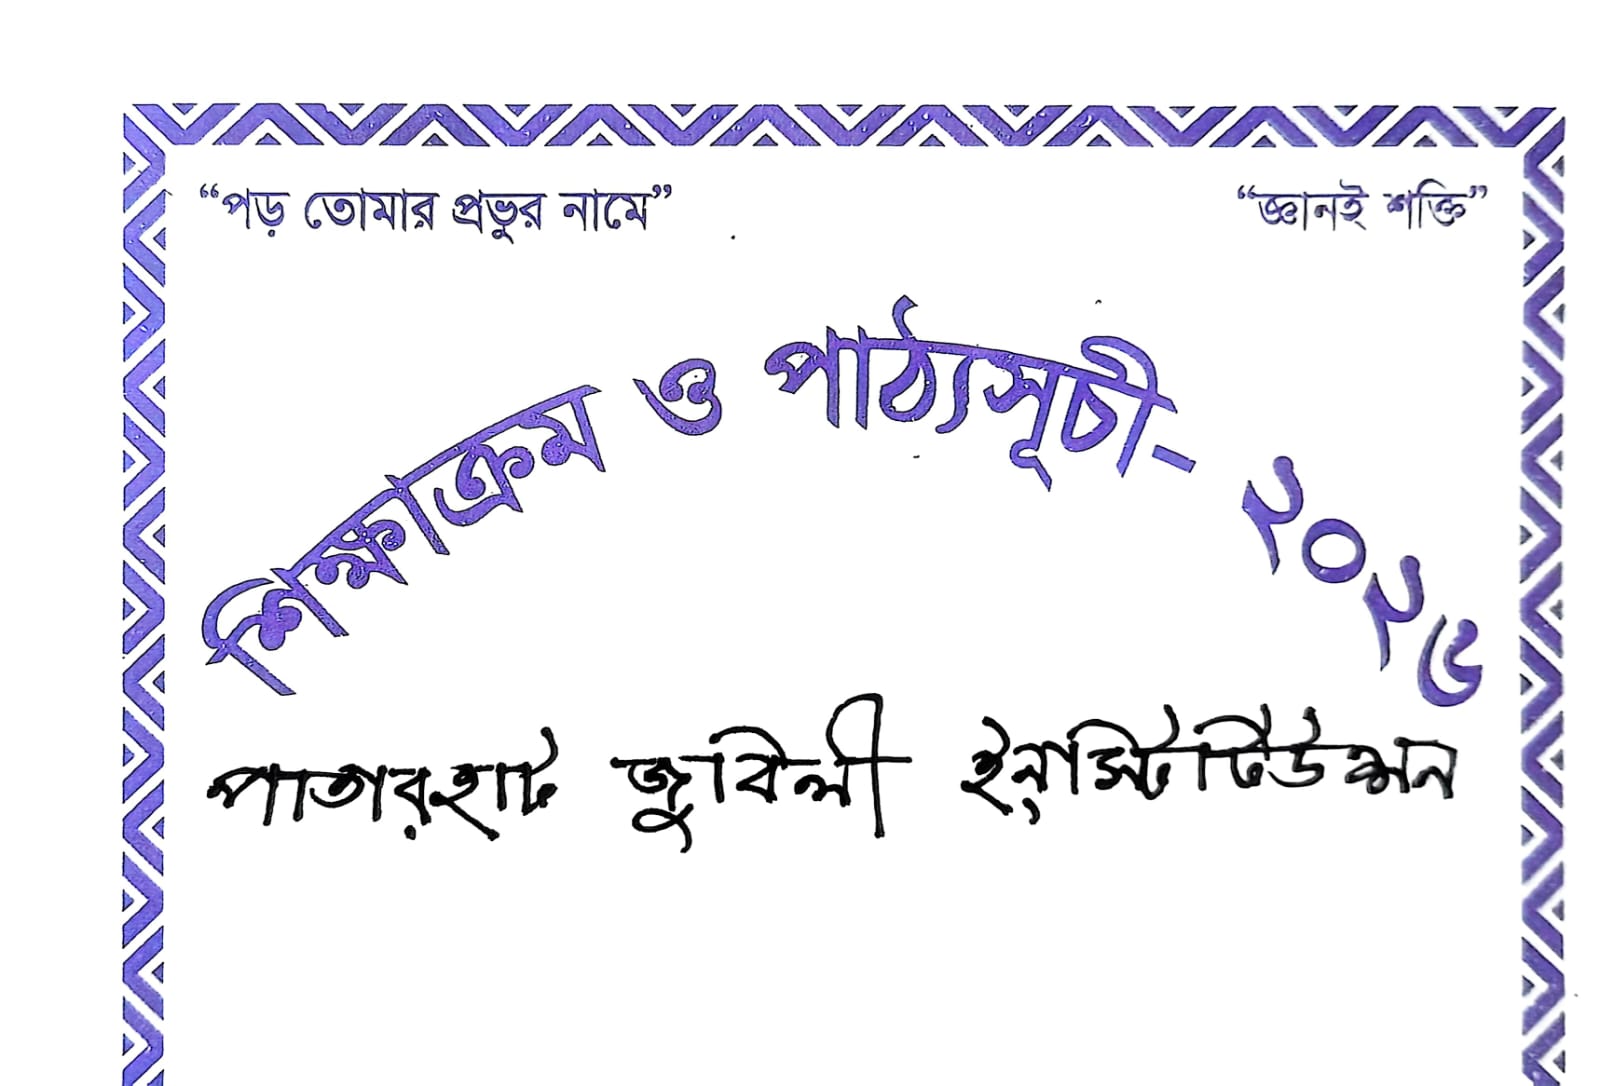 “পড় তোমার প্রভুর নামে” “জ্ঞানই শক্তি”
শিক্ষাক্রম ও পাঠ্যসূচী- ২০২৬
পাতারহাট জুবিলী ইন্সটিটিউশন